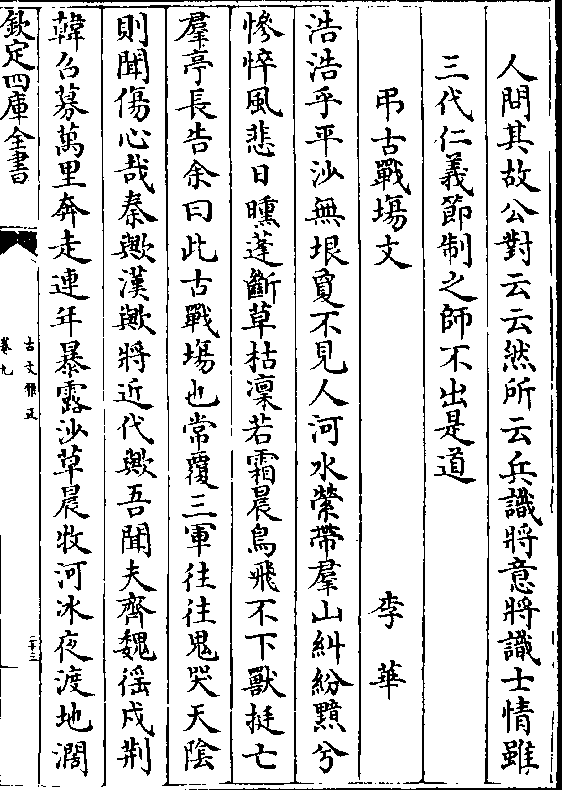 人問其故公對云云然所云兵識將意將識士情雖
三代仁義節制之師不出是道
弔古戰塲文　李華
浩浩乎平沙無垠敻不見人河水縈帶羣山糾紛黯兮
慘悴風悲日曛蓬斷草枯凛若霜晨鳥飛不下獸挺亡
羣亭長告余曰此古戰塲也常覆三軍往往鬼哭天陰
則聞傷心哉秦歟漢歟將近代歟吾聞夫齊魏徭戍荆
韓召募萬里奔走連年暴露沙草晨牧河冰夜渡地濶
欽定四庫全書
古文雅正
卷九
二十三